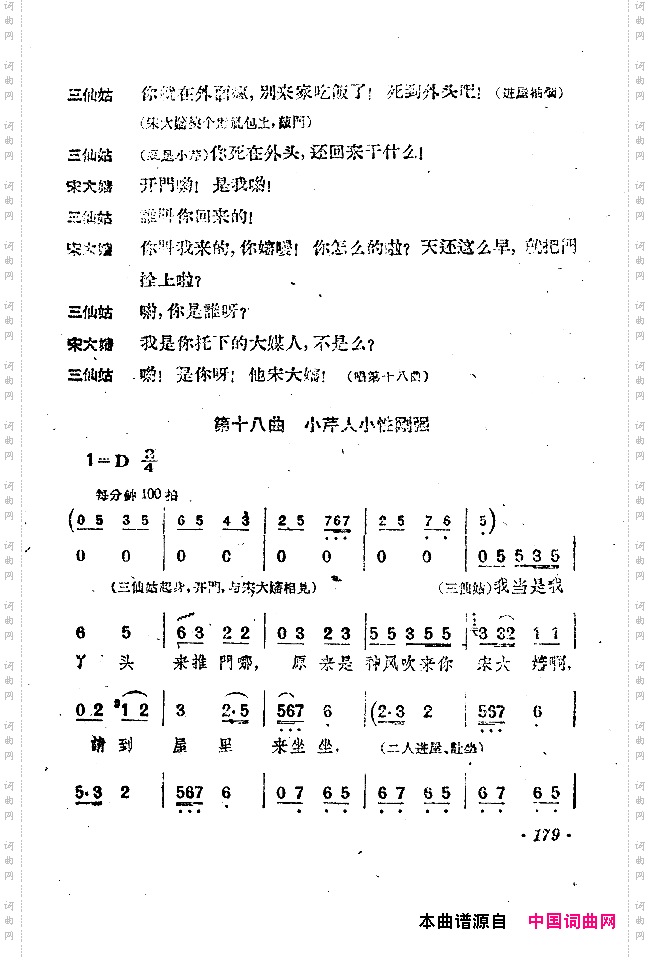 三仙姑 你就在外面疯,别来家吃飯了! 死到外头吧! (进屋插門)
(宋大嬸上,敲門)
三仙姑 (以为是小芹)你死在外头,还回来干什么!
宋大嬸 开門喲! 是我喲!
三仙姑 誰叫你回来的!
宋大嬸 你叫我来的,你嬸噯! 你怎么的啦? 天还这么早,就把門
拴上啦?
三仙姑 喲,你是誰呀?
宋大嬸 我是你托下的大媒人,不是么?
三仙姑 喲! 是你呀! 他宋大嬸! (唱第十八曲)
第十八曲 小芹人小性刚强
1=D 2/4
每分钟100拍
(0 5 3 5 | 6 5 4 3 | 2 5 767 | 2 5 7 6 | 5)
0 0 | 0 0 | 0 0 | 0 0 | 0 5 5 3 5 |
(三仙姑起身,开門,与宋大嬸相見) (三仙姑)我当是我
6 5 | 6 3 2 2 | 0 3 2 3 | 5 5 3 5 5 | 3 32 1 1 |
丫 头 来推 門哪, 原 来是 神风吹来你 宋大 嬸啊,
0 2 1 2 | 3 2·5 | 567 6 | (2·3 2 | 567 6 |
請到 屋 里 来坐 坐. (二人进屋、让坐)
5·3 2 | 567 6 | 0 7 6 5 | 6 7 6 5 | 6 7 6 5 |
· 179 ·
本曲谱源自 中国词曲网